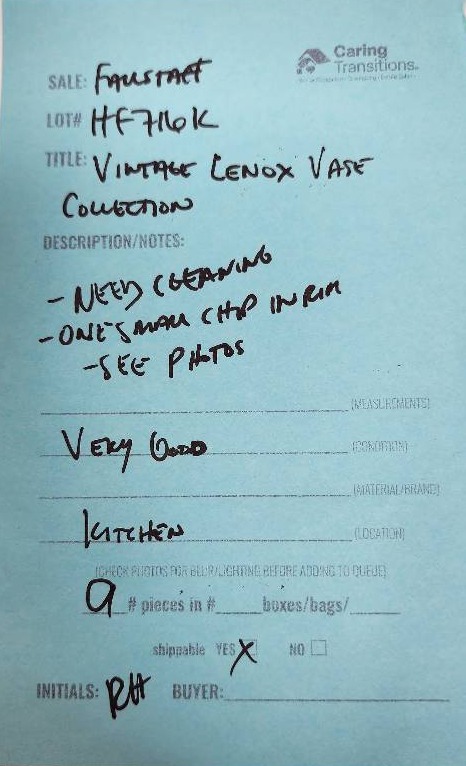 Caring
Transitions
SALE: FALLSTAFF
LOT# HF716K
TITLE: VINTAGE LENOX VASE
COLLECTION
DESCRIPTION/NOTES:
- NEED CLEANING
- ONE SMALL CHIP IN RIM
- SEE PHOTOS
(MEASUREMENTS)
VERY GOOD (CONDITION)
(MATERIAL/BRAND)
KITCHEN (LOCATION)
(CHECK PHOTOS FOR BLUR/LIGHTING BEFORE ADDING TO QUEUE)
9 # pieces in # boxes/bags/
shippable YES X NO
INITIALS: RH BUYER: